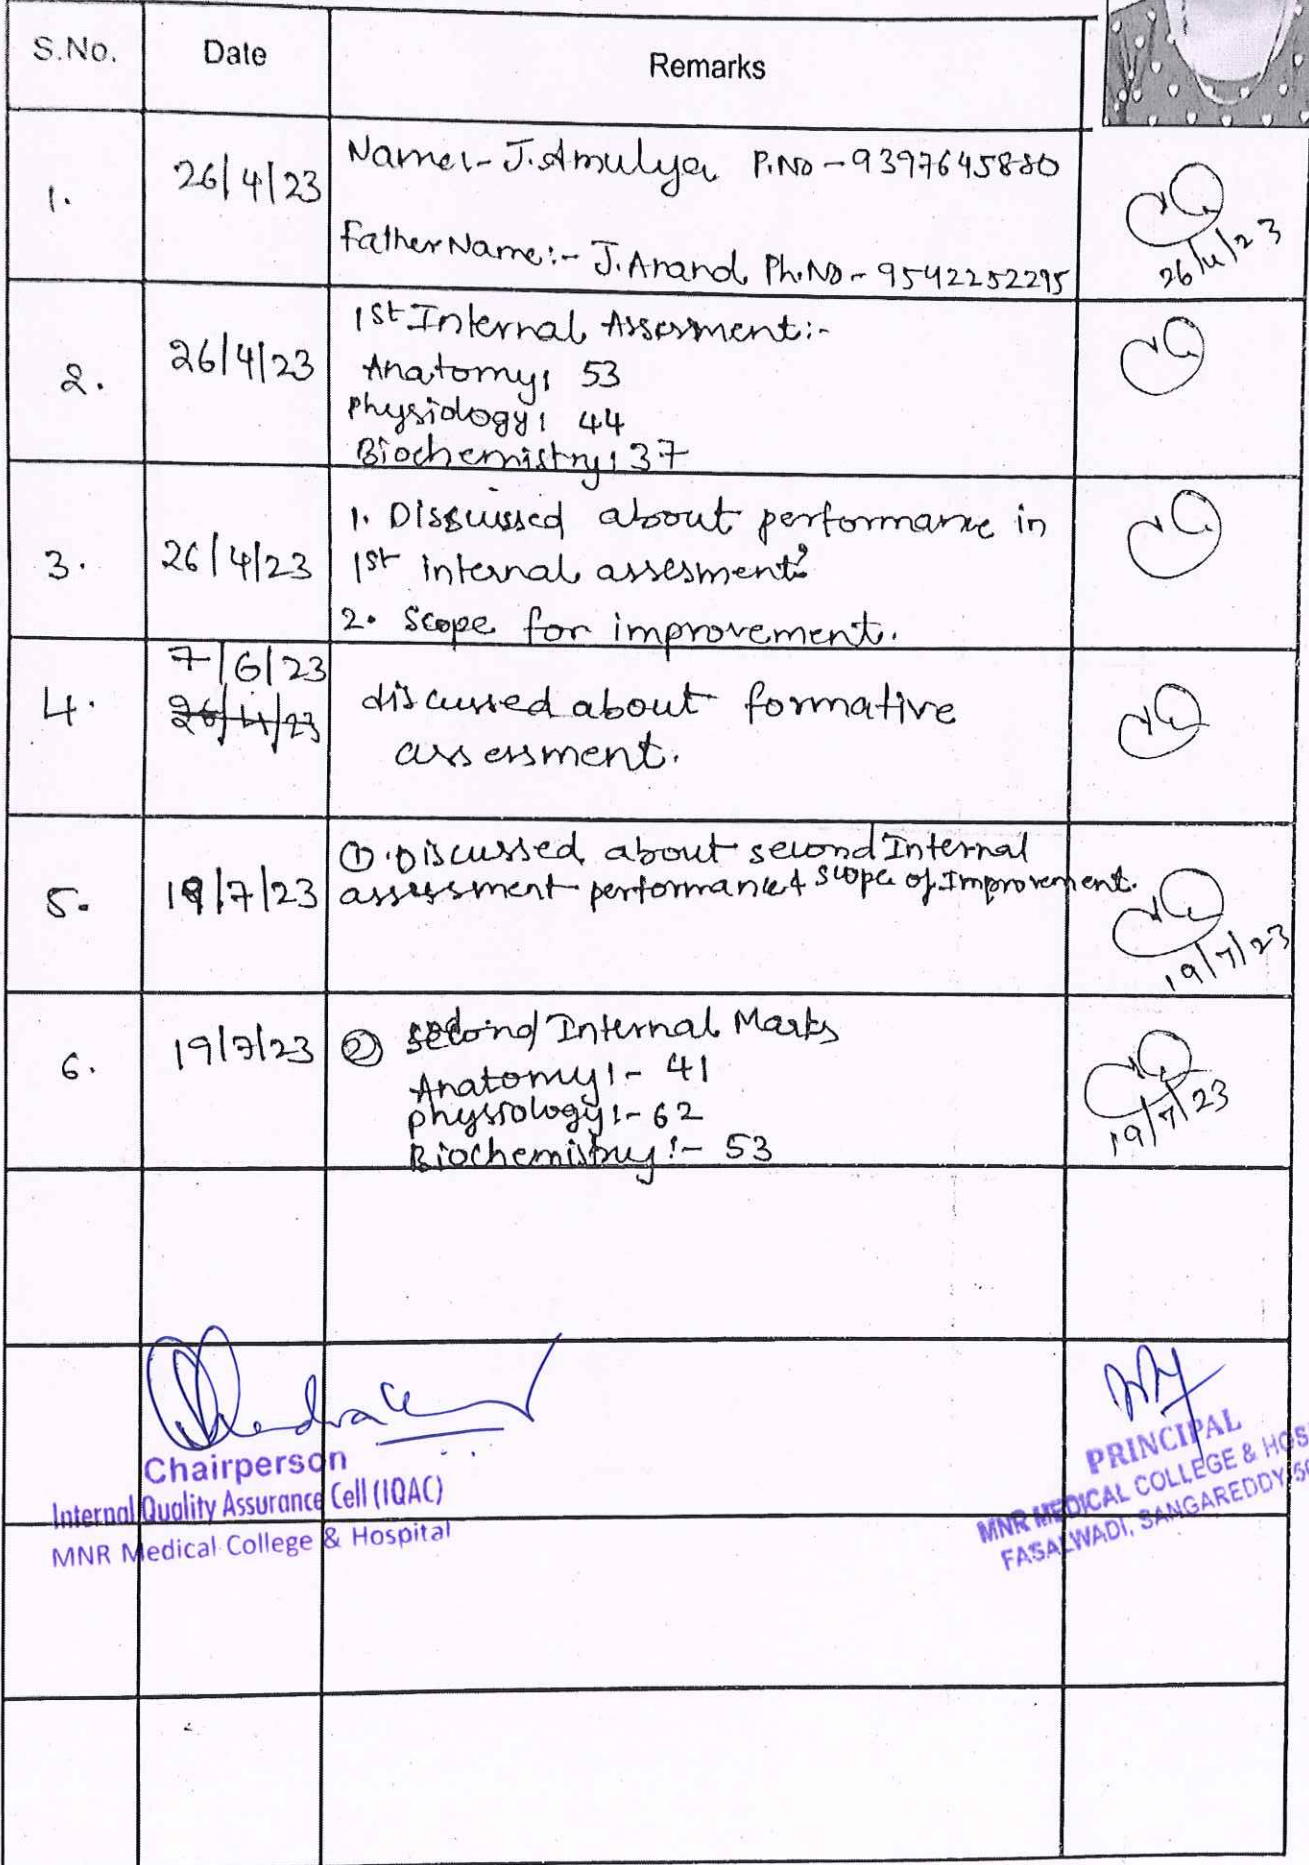 S.No. Date Remarks
1. 26/4/23 Name:- J. Amulya P.No - 9397645880
Father Name:- J. Anand Ph.No - 9542252295
26/4/23
2. 26/4/23 1st Internal Assesment:-
Anatomy: 53
Physiology: 44
Biochemistry: 37
3. 26/4/23 1. Disscussed about performance in
1st internal assesment
2. Scope for improvement.
4. 7/6/23
26/4/23 discussed about formative
assessment.
5. 19/7/23 ① Discussed about second Internal
assessment performance & scope of Improvement.
19/7/23
6. 19/7/23 ② second Internal Marks
Anatomy:- 41
physiology:- 62
Biochemistry:- 53
19/7/23
Chairperson
Internal Quality Assurance Cell (IQAC)
MNR Medical College & Hospital
PRINCIPAL
MNR MEDICAL COLLEGE & HOS
FASALWADI, SANGAREDDY